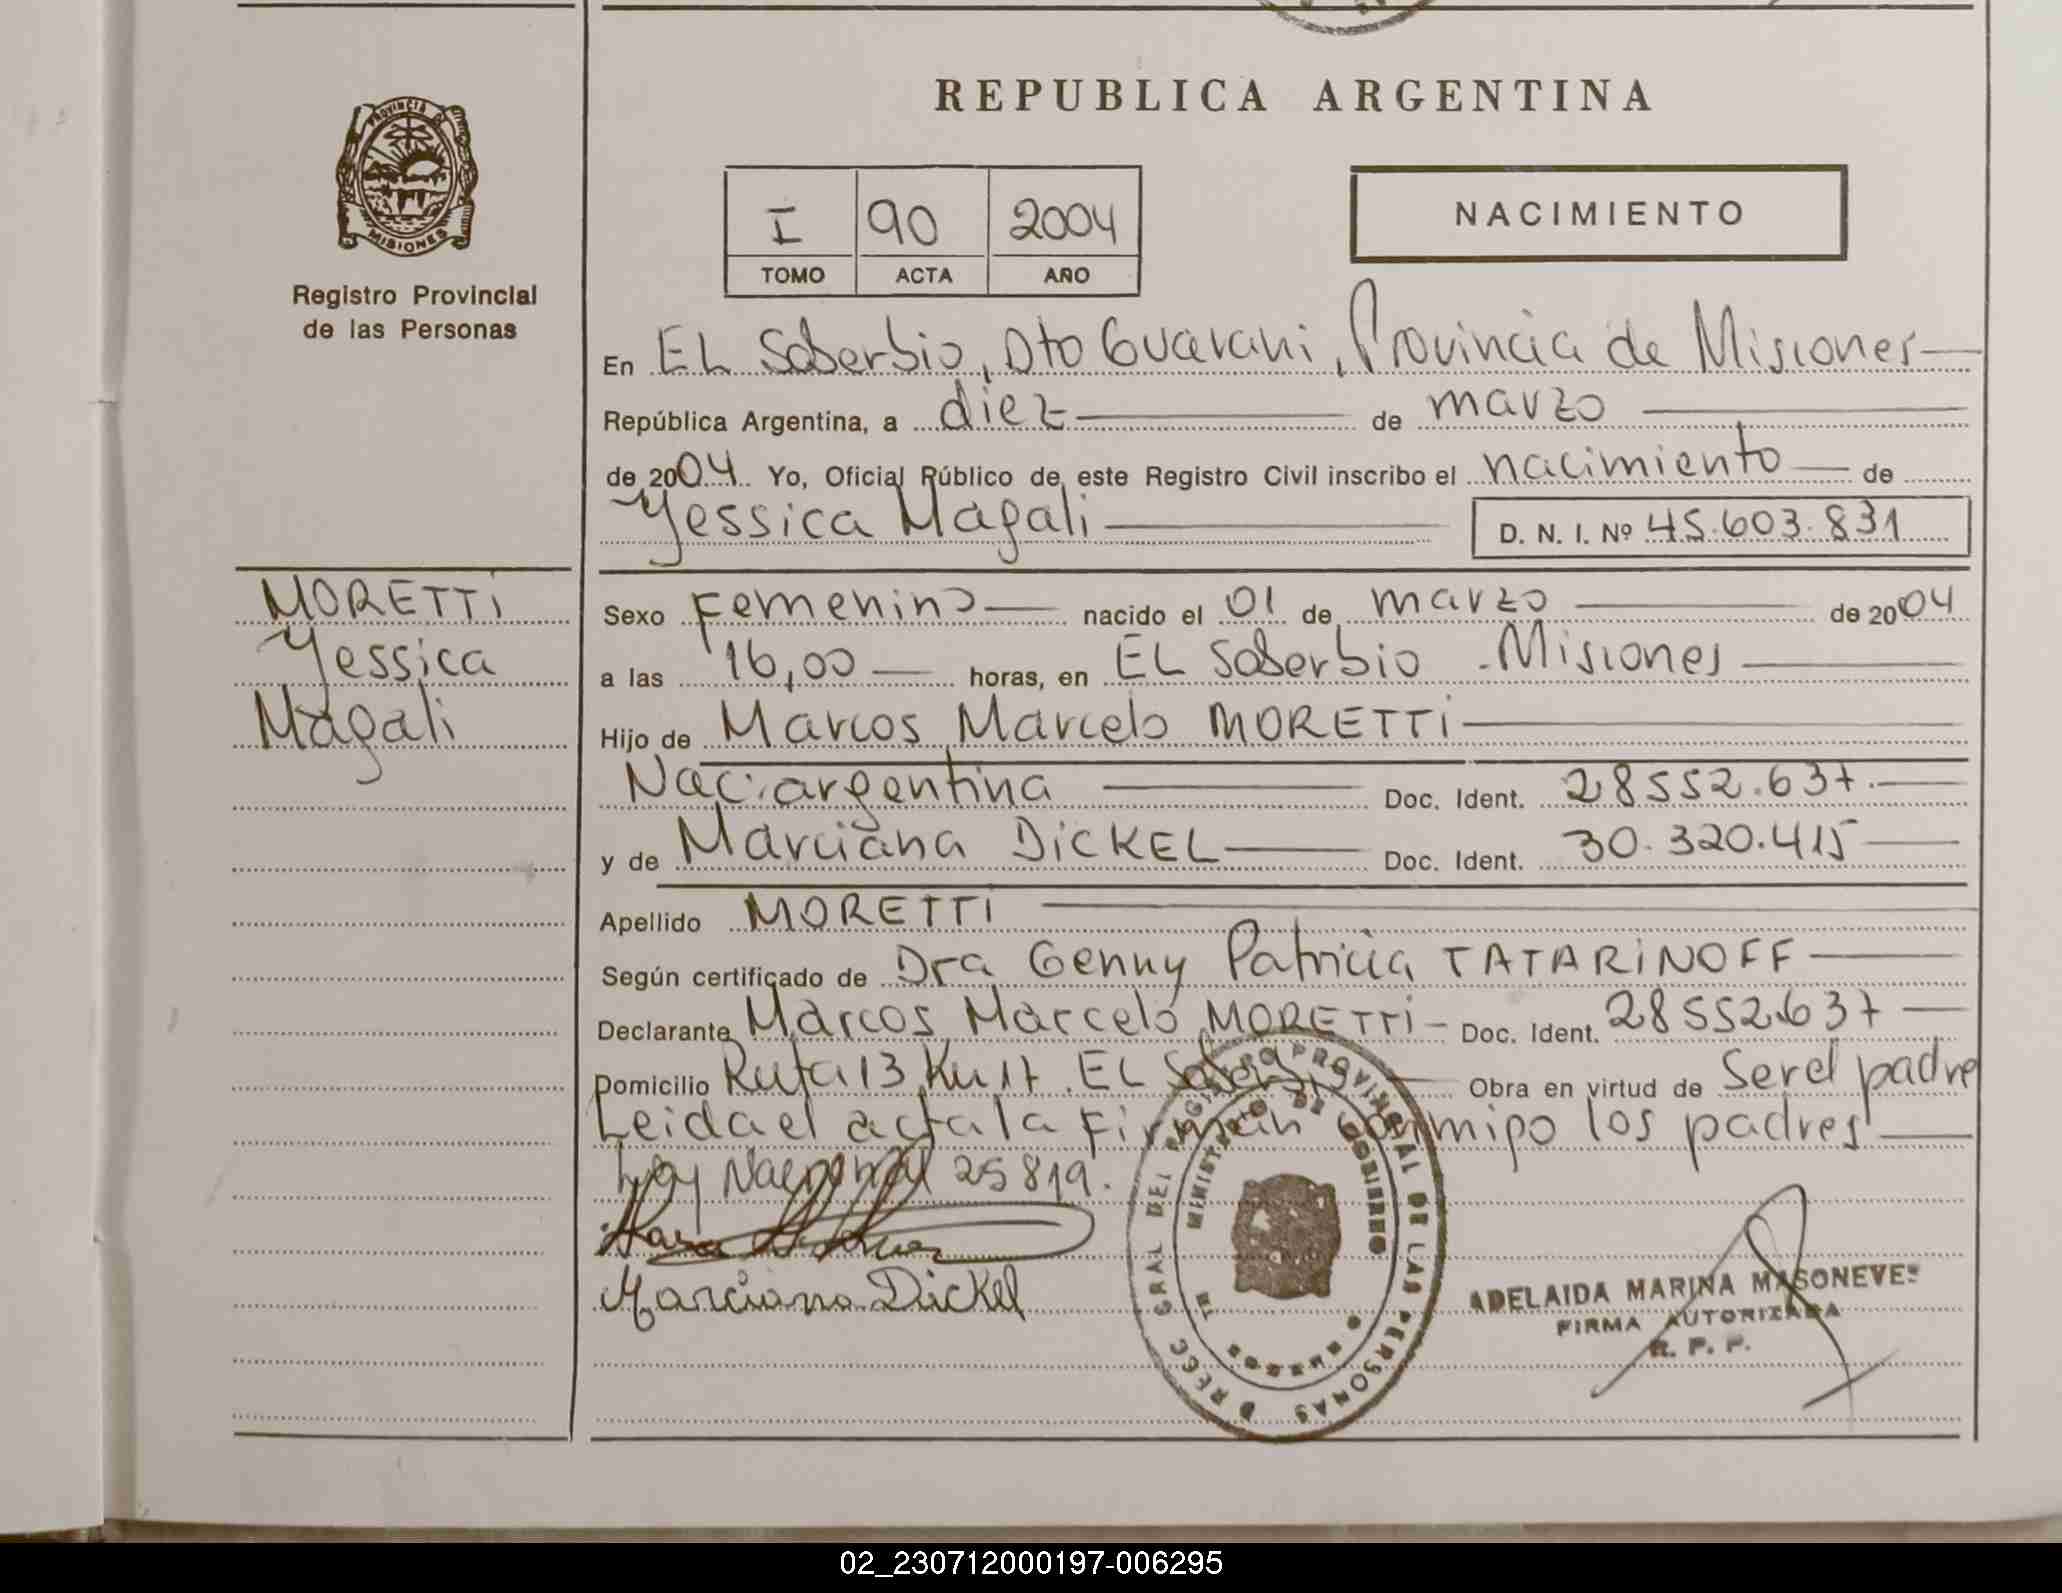 REPUBLICA ARGENTINA
PROVINCIA DE
MISIONES
Registro Provincial
de las Personas
I 90 2004
TOMO ACTA AÑO
NACIMIENTO
En EL Soberbio, Dto Guarani, Provincia de Misiones
República Argentina, a diez de marzo
de 2004 Yo, Oficial Público de este Registro Civil inscribo el nacimiento de
Yessica Magali D. N. I. Nº 45.603.831
MORETTI
Yessica
Magali
Sexo Femenino nacido el 01 de marzo de 2004
a las 16,00 horas, en EL Soberbio - Misiones
Hijo de Marcos Marcelo MORETTI
Nac. argentina Doc. Ident. 28552.637.
y de Marciana DICKEL Doc. Ident. 30.320.415
Apellido MORETTI
Según certificado de Dra Genny Patricia TATARINOFF
Declarante Marcos Marcelo MORETTI - Doc. Ident. 28552.637
Domicilio Ruta 13 Km 17. EL Soberbio Obra en virtud de Ser el padre
Leida el acta la Firman conmigo los padres
Ley Nacional 25819.
Marciana Dickel
DIREC. GRAL DEL REGISTRO PROVINCIAL DE LAS PERSONAS
MINISTERIO DE GOBIERNO
ADELAIDA MARINA MASONEVES
FIRMA AUTORIZADA
R. P. P.
02_230712000197-006295